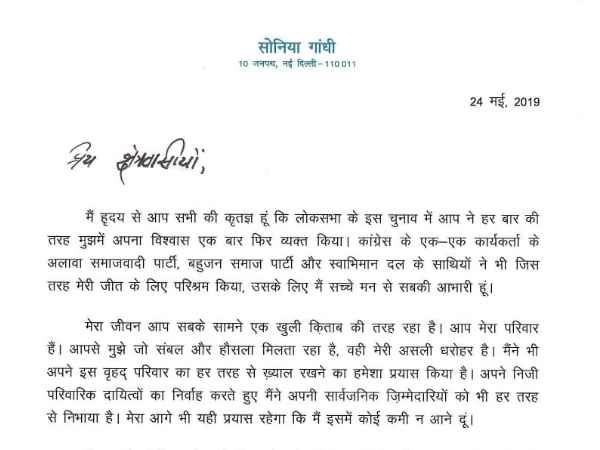 सोनिया गांधी
10 जनपथ, नई दिल्ली–110011
24 मई, 2019
प्रिय क्षेत्रवासियों,
मैं हृदय से आप सभी की कृतज्ञ हूं कि लोकसभा के इस चुनाव में आप ने हर बार की
तरह मुझमें अपना विश्वास एक बार फिर व्यक्त किया। कांग्रेस के एक–एक कार्यकर्ता के
अलावा समाजवादी पार्टी, बहुजन समाज पार्टी और स्वाभिमान दल के साथियों ने भी जिस
तरह मेरी जीत के लिए परिश्रम किया, उसके लिए मैं सच्चे मन से सबकी आभारी हूं।
मेरा जीवन आप सबके सामने एक खुली क़िताब की तरह रहा है। आप मेरा परिवार
हैं। आपसे मुझे जो संबल और हौसला मिलता रहा है, वही मेरी असली धरोहर है। मैंने भी
अपने इस वृहद् परिवार का हर तरह से ख़्याल रखने का हमेशा प्रयास किया है। अपने निजी
परिवारिक दायित्वों का निर्वाह करते हुए मैंने अपनी सार्वजनिक ज़िम्मेदारियों को भी हर तरह
से निभाया है। मेरा आगे भी यही प्रयास रहेगा कि मैं इसमें कोई कमी न आने दूं।